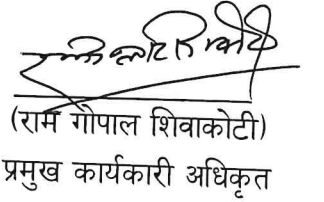 (राम गोपाल शिवाकोटी)
प्रमुख कार्यकारी अधिकृत